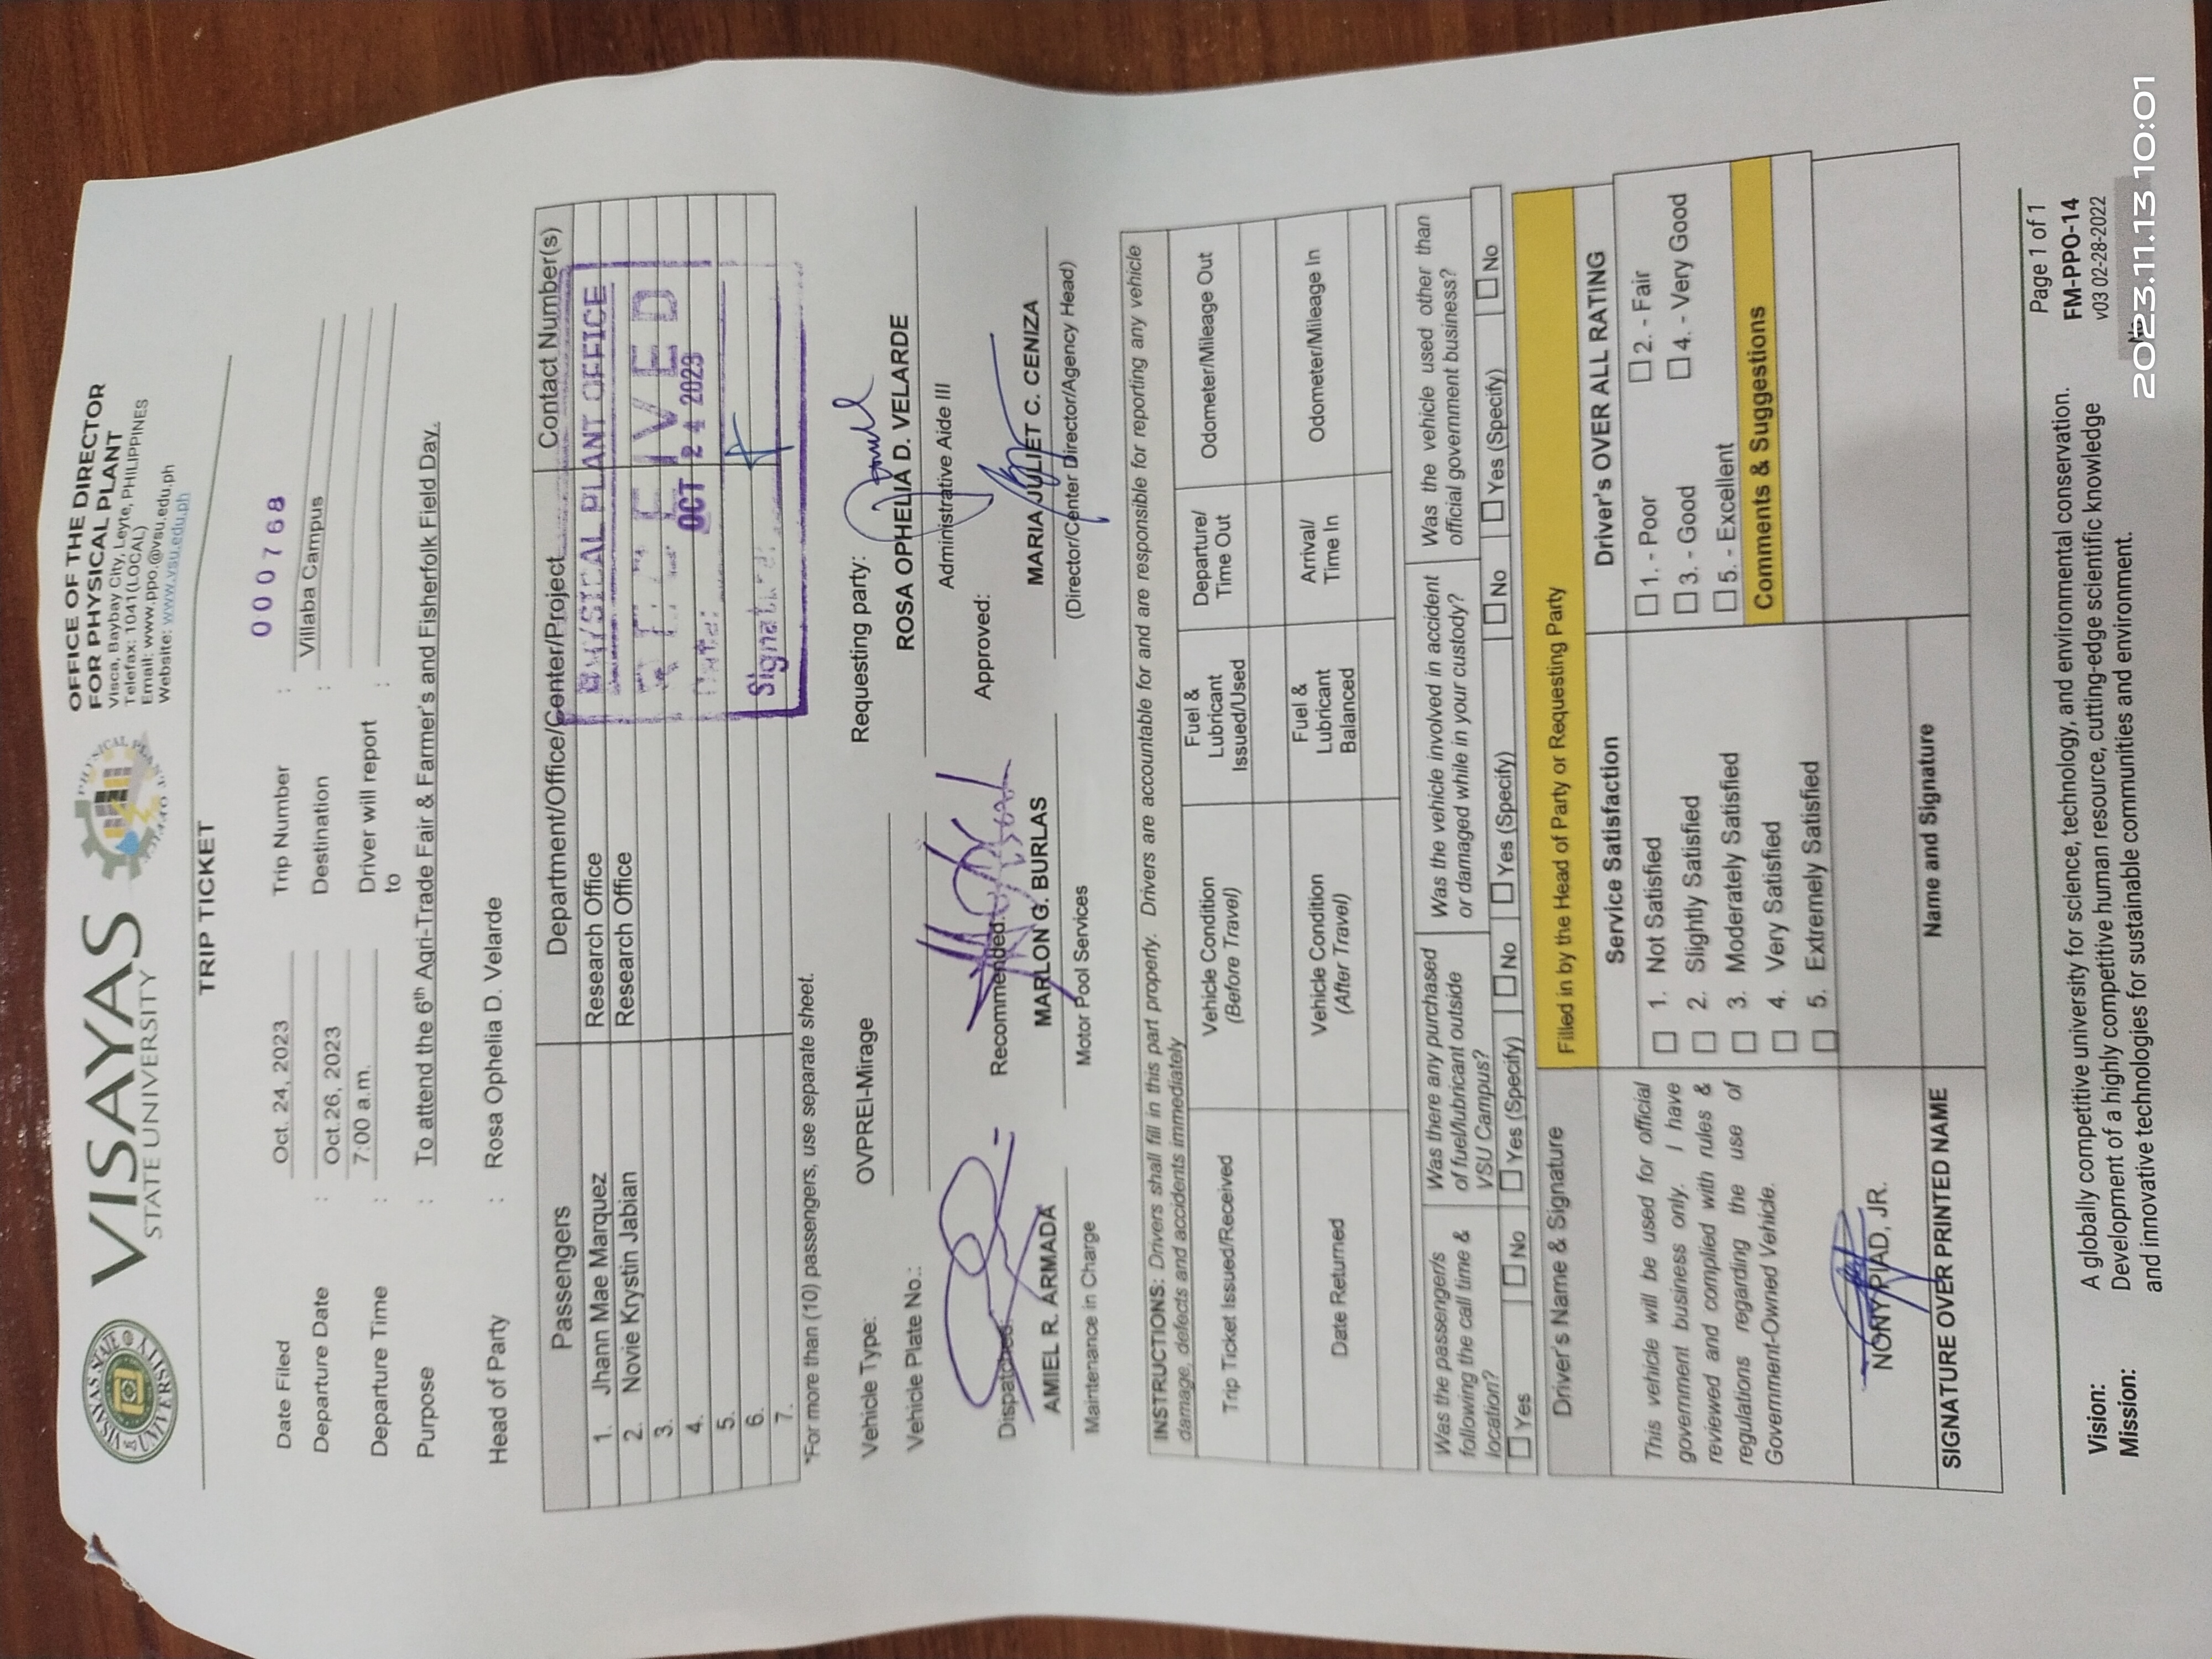 VISAYAS
STATE UNIVERSITY
OFFICE OF THE DIRECTOR
FOR PHYSICAL PLANT
Visca, Baybay City, Leyte, PHILIPPINES
Telefax: 1041(LOCAL)
Email: www.ppo.@vsu.edu.ph
Website: www.vsu.edu.ph
TRIP TICKET
Date Filed : Oct. 24, 2023 Trip Number : 000768
Departure Date : Oct.26, 2023 Destination : Villaba Campus
Departure Time : 7:00 a.m. Driver will report to :
Purpose : To attend the 6th Agri-Trade Fair & Farmer's and Fisherfolk Field Day.
Head of Party : Rosa Ophelia D. Velarde
Passengers Department/Office/Center/Project Contact Number(s)
1. Jhann Mae Marquez Research Office
2. Novie Krystin Jabian Research Office
3.
4.
5.
6.
7.
PHYSICAL PLANT OFFICE
RECEIVED
Date: OCT 24 2023
Signature:
*For more than (10) passengers, use separate sheet.
Vehicle Type: OVPREI-Mirage Requesting party:
Vehicle Plate No.: ROSA OPHELIA D. VELARDE
Administrative Aide III
Dispatched: Recommended: Approved:
AMIEL R. ARMADA MARLON G. BURLAS MARIA JULIET C. CENIZA
Maintenance in Charge Motor Pool Services (Director/Center Director/Agency Head)
INSTRUCTIONS: Drivers shall fill in this part properly. Drivers are accountable for and are responsible for reporting any vehicle
damage, defects and accidents immediately
Trip Ticket Issued/Received Vehicle Condition (Before Travel) Fuel & Lubricant Issued/Used Departure/ Time Out Odometer/Mileage Out
Date Returned Vehicle Condition (After Travel) Fuel & Lubricant Balanced Arrival/ Time In Odometer/Mileage In
Was the passenger/s following the call time & location? Was there any purchased of fuel/lubricant outside VSU Campus? Was the vehicle involved in accident or damaged while in your custody? Was the vehicle used other than official government business?
☐ Yes ☐ No ☐ Yes (Specify) ☐ No ☐ Yes (Specify) ☐ No ☐ Yes (Specify) ☐ No
Driver's Name & Signature Filled in by the Head of Party or Requesting Party
Service Satisfaction Driver's OVER ALL RATING
This vehicle will be used for official
government business only. I have
reviewed and complied with rules &
regulations regarding the use of
Government-Owned Vehicle.
☐ 1. Not Satisfied
☐ 2. Slightly Satisfied
☐ 3. Moderately Satisfied
☐ 4. Very Satisfied
☐ 5. Extremely Satisfied
☐ 1. - Poor ☐ 2. - Fair
☐ 3. - Good ☐ 4. - Very Good
☐ 5. - Excellent
Comments & Suggestions
NONY PIAD, JR.
SIGNATURE OVER PRINTED NAME Name and Signature
Vision: A globally competitive university for science, technology, and environmental conservation.
Mission: Development of a highly competitive human resource, cutting-edge scientific knowledge
and innovative technologies for sustainable communities and environment.
Page 1 of 1
FM-PPO-14
v03 02-28-2022
2023.11.13 10:01